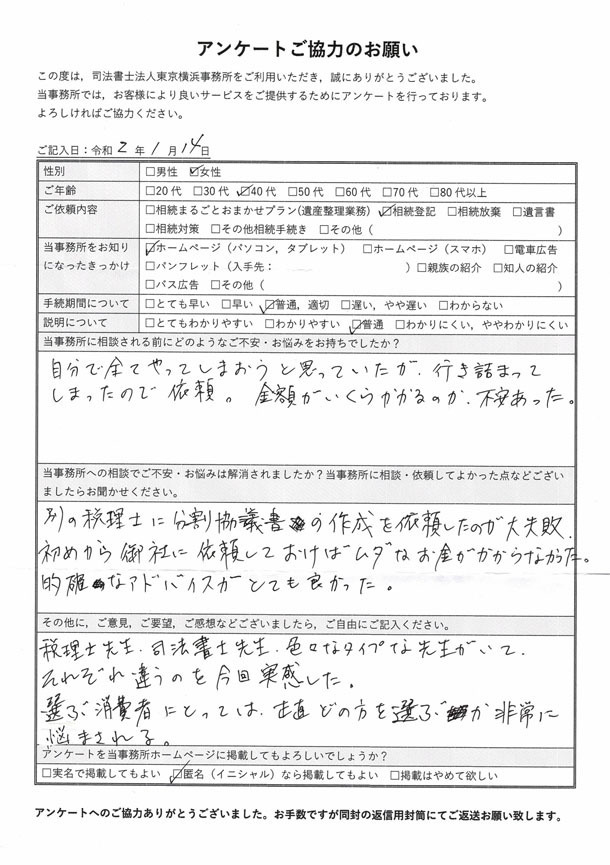 アンケートご協力のお願い
この度は，司法書士法人東京横浜事務所をご利用いただき，誠にありがとうございました。
当事務所では，お客様により良いサービスをご提供するためにアンケートを行っております。
よろしければご協力ください。
ご記入日：令和 2 年 1 月 14日
性別 □男性 ☑女性
ご年齢 □20代 □30代 ☑40代 □50代 □60代 □70代 □80代以上
ご依頼内容 □相続まるごとおまかせプラン(遺産整理業務) ☑相続登記 □相続放棄 □遺言書
□相続対策 □その他相続手続き □その他（ ）
当事務所をお知り ☑ホームページ（パソコン，タブレット） □ホームページ（スマホ） □電車広告
になったきっかけ □パンフレット（入手先： ）□親族の紹介 □知人の紹介
□バス広告 □その他（ ）
手続期間について □とても早い □早い ☑普通，適切 □遅い，やや遅い □わからない
説明について □とてもわかりやすい □わかりやすい ☑普通 □わかりにくい，ややわかりにくい
当事務所に相談される前にどのようなご不安・お悩みをお持ちでしたか？
自分で全てやってしまおうと思っていたが、行き詰まって
しまったので依頼。 金額がいくらかかるのか、不安あった。
当事務所への相談でご不安・お悩みは解消されましたか？当事務所に相談・依頼してよかった点などござい
ましたらお聞かせください。
別の税理士に分割協議書の作成を依頼したのが大失敗、
初めから御社に依頼しておけばムダなお金がかからなかった。
的確なアドバイスがとても良かった。
その他に，ご意見，ご要望，ご感想などございましたら，ご自由にご記入ください。
税理士先生、司法書士先生、色々なタイプな先生がいて、
それぞれ違うのを今回実感した。
選ぶ消費者にとっては、正直どの方を選ぶか非常に
悩まされる。
アンケートを当事務所ホームページに掲載してもよろしいでしょうか？
□実名で掲載してもよい ☑匿名（イニシャル）なら掲載してもよい □掲載はやめて欲しい
アンケートへのご協力ありがとうございました。お手数ですが同封の返信用封筒にてご返送お願い致します。